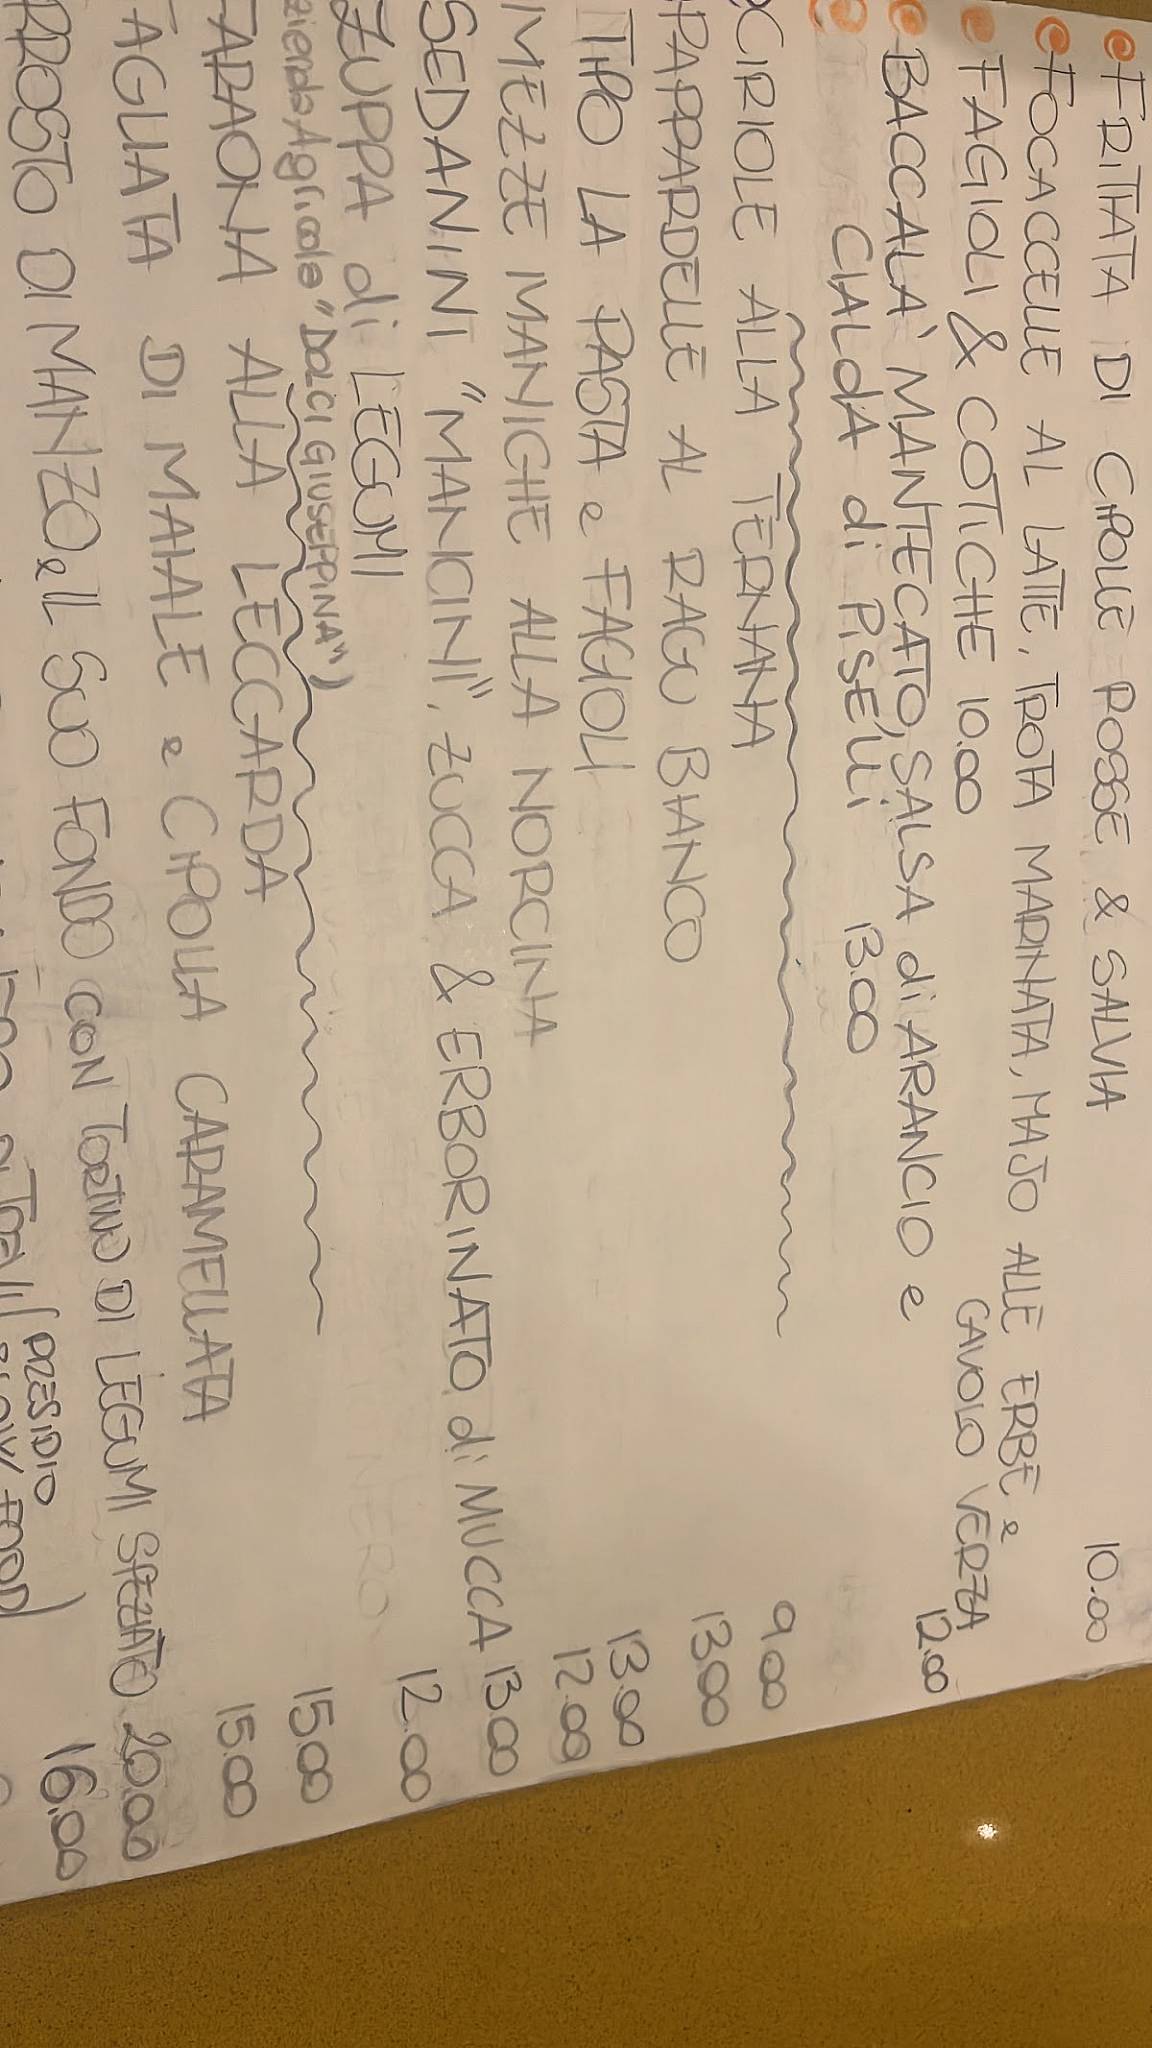 FRITTATA DI CIPOLLE ROSSE & SALVIA 10.00
FOCACCELLE AL LATTE, TROTA MARINATA, MAJO ALLE ERBE e
CAVOLO VERZA 12.00
FAGIOLI & COTICHE 10.00
BACCALA' MANTECATO, SALSA di ARANCIO e
CIALDA di PISELLI 13.00
CIRIOLE ALLA TERNANA 9.00
PAPPARDELLE AL RAGU BIANCO 13.00
TIPO LA PASTA e FAGIOLI 13.00
MEZZE MANICHE ALLA NORCINA 12.00
SEDANINI "MANCINI", ZUCCA & ERBORINATO di MUCCA 13.00
ZUPPA di LEGUMI 12.00
Agricola "DOLCI GIUSEPPINA")
FARAONA ALLA LECCARDA 15.00
TAGLIATA DI MAIALE e CIPOLLA CARAMELLATA 15.00
ROSTO DI MANZO e IL SUO FONDO CON TORTINO DI LEGUMI SPEZIATO 20.00
(PRESIDIO
16.00